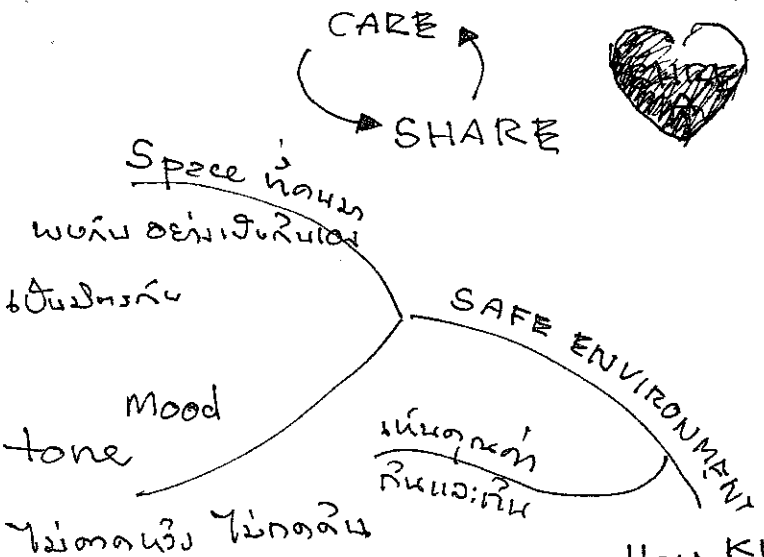 CARE
SHARE
Space ที่คนมา
พบกัน อย่างเป็นกันเอง
เป็นมิตรกัน
SAFE ENVIRONMENT
Mood
tone
เห็นคุณค่า
กันและกัน
ไม่คาดหวัง ไม่กดดัน